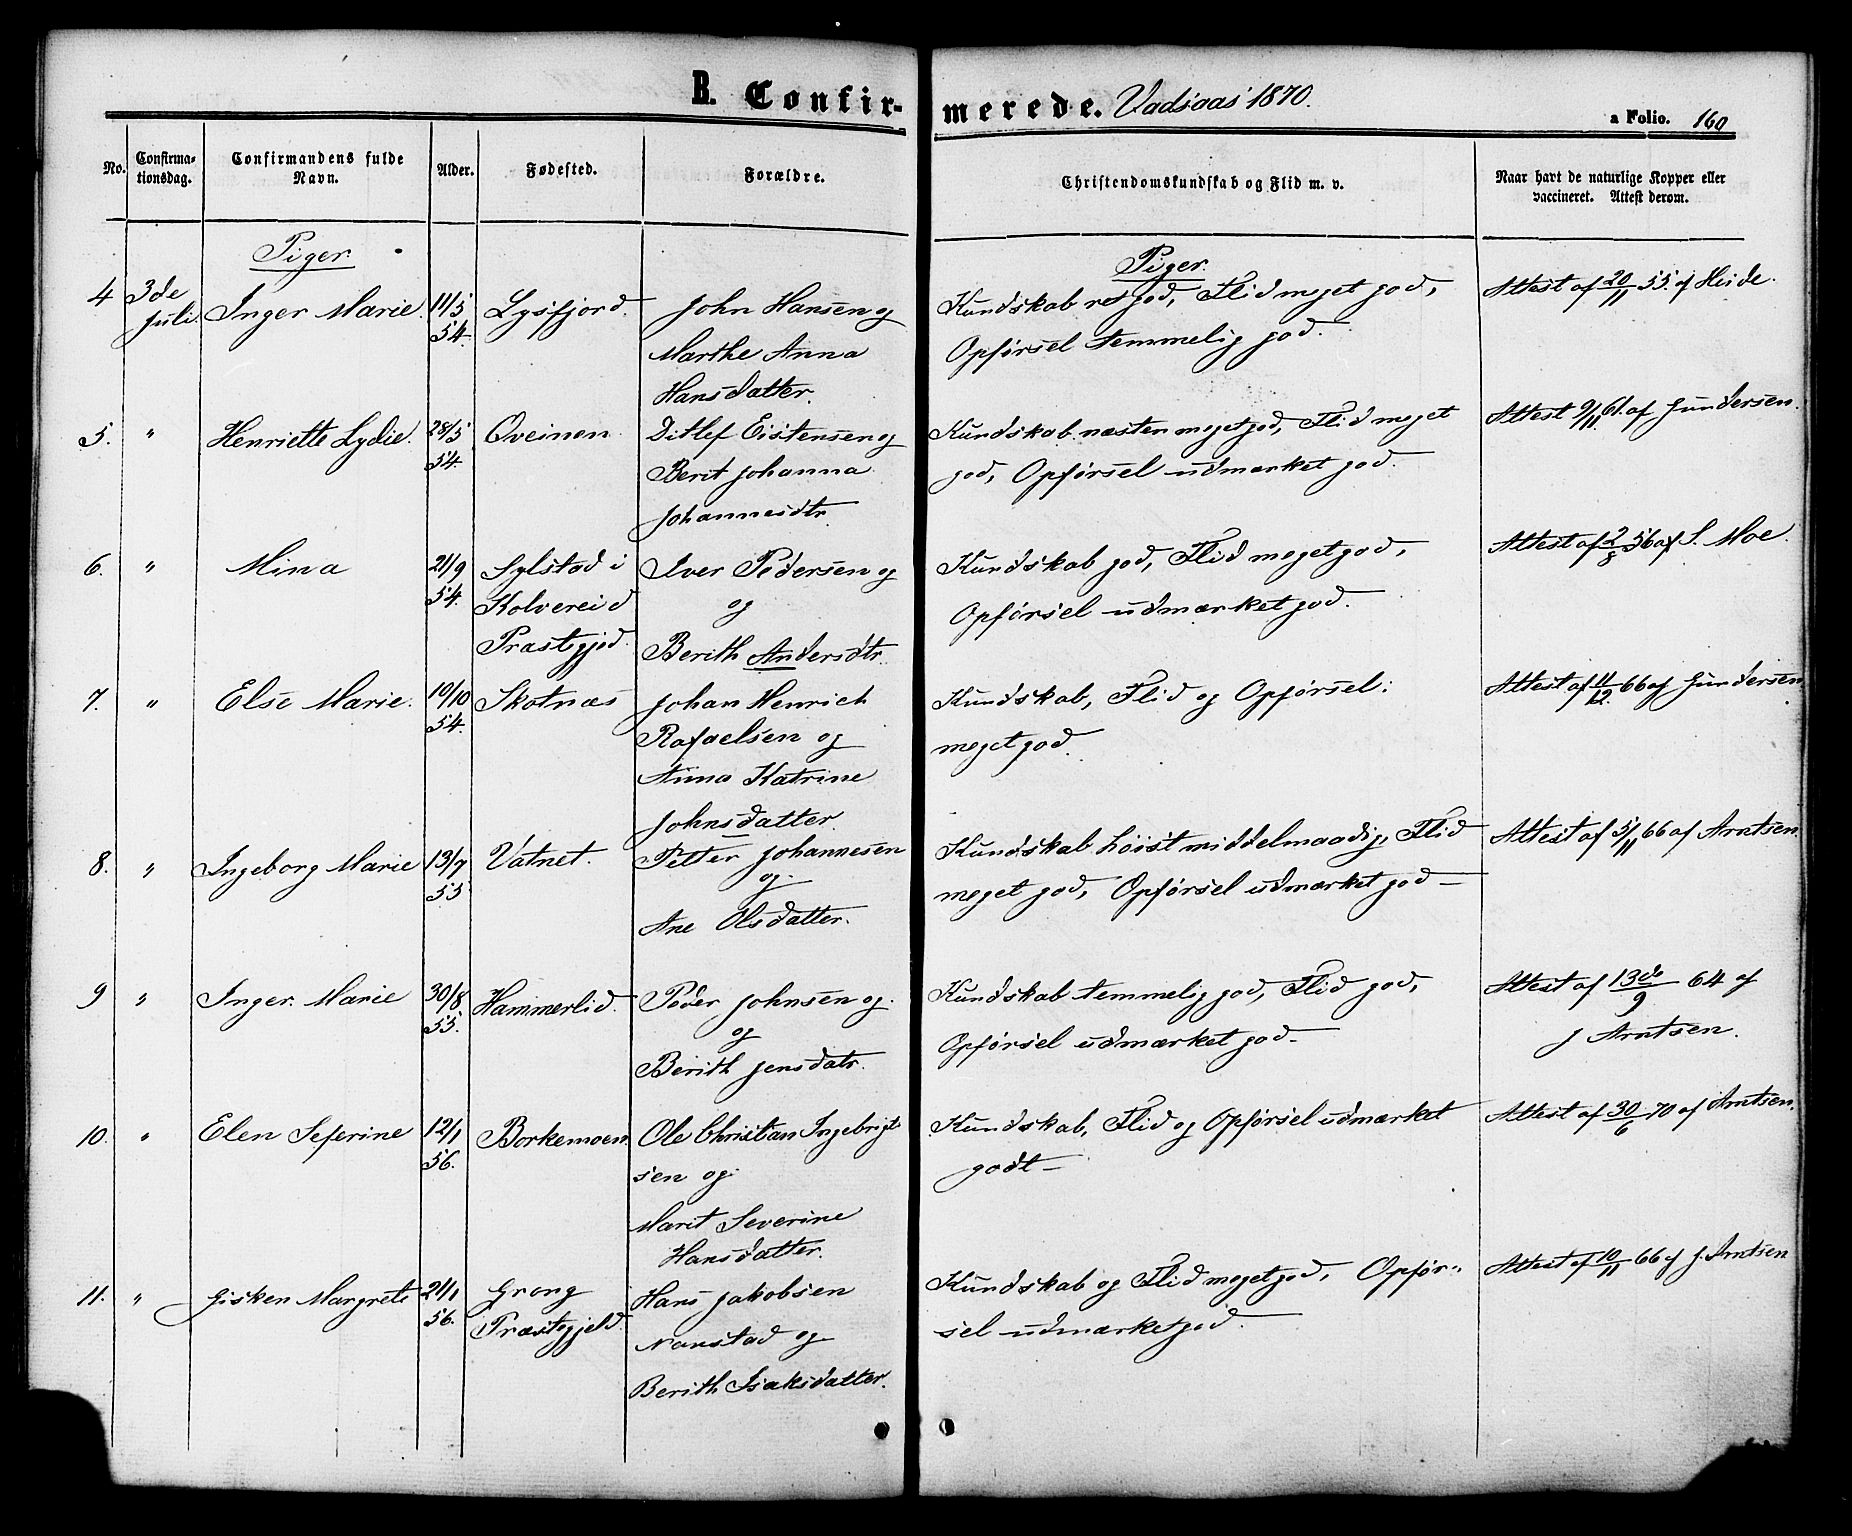 B. Confirmerede. Vadsaas 1870.
a Folio. 160
No. Confirmationsdag. Confirmandens fulde Navn. Alder. Fødested. Forældre. Christendomskundskab og Flid m. v. Naar havt de naturlige Kopper eller vaccineret. Attest derom.
Piger. Piger.
4 3de Juli Inger Marie 11/5 54. Lysfjord. John Hansen og
Marthe Anna
Hansdatter.
Kundskab ret god, Flid meget god,
Opførsel temmelig god.
Attest af 20/11 55. af Heide.
5. " Henriette Lydie. 28/5 54. Qveinen Ditlef Eistensen og
Berit Johanna
Johannesdtr
Kundskab næsten meget god, Flid meget
god, Opførsel udmærket god.
Attest 9/11 61. af Gundersen.
6. " Mina 21/9 54. Sylstad i
Kolvereid
Præstgjed.
Iver Pedersen og
og
Berith Andersdtr.
Kundskab god, Flid meget god,
Opførsel udmærket god.
Attest af 2/8 56 af S. Moe.
7. " Else Marie. 10/10 54. Skotnæs Johan Henrich
Rafaelsen og
Anna Katrine
Johnsdatter.
Kundskab, Flid og Opførsel:
meget god.
Attest af 11/12. 66 af Gundersen
8. " Ingeborg Marie 13/7 55 Vatnet. Petter Johannesen
og
Ane Olsdatter.
Kundskab høist middelmaadig, Flid
meget god, Opførsel udmærket god—
Attest af 5/11 66 af Arntsen.
9 " Inger Marie 30/8. 55. Hammerlid. Peder Johnsen og
og
Berith Jensdatr.
Kundskab temmelig god, Flid god,
Opførsel udmærket god—
Attest af 13de/9 64 af
J Arntsen.
10. " Elen Seferine 12/1 56. Borkemoen Ole Christian Ingebrigt
sen og
Marit Severine
Hansdatter.
Kundskab, Flid og Opførsel udmærket
godt—
Attest af 30/6 70 af Arntsen.
11. " Gisken Margrete 24/1 56. Grong
Præstegjeld.
Hans Jakobsen
Nanstad og
Berith Isaksdatter.
Kundskab og Flid meget god, Opfør-
sel udmærket god.
Attest af 10/11 66 af J. Arntsen